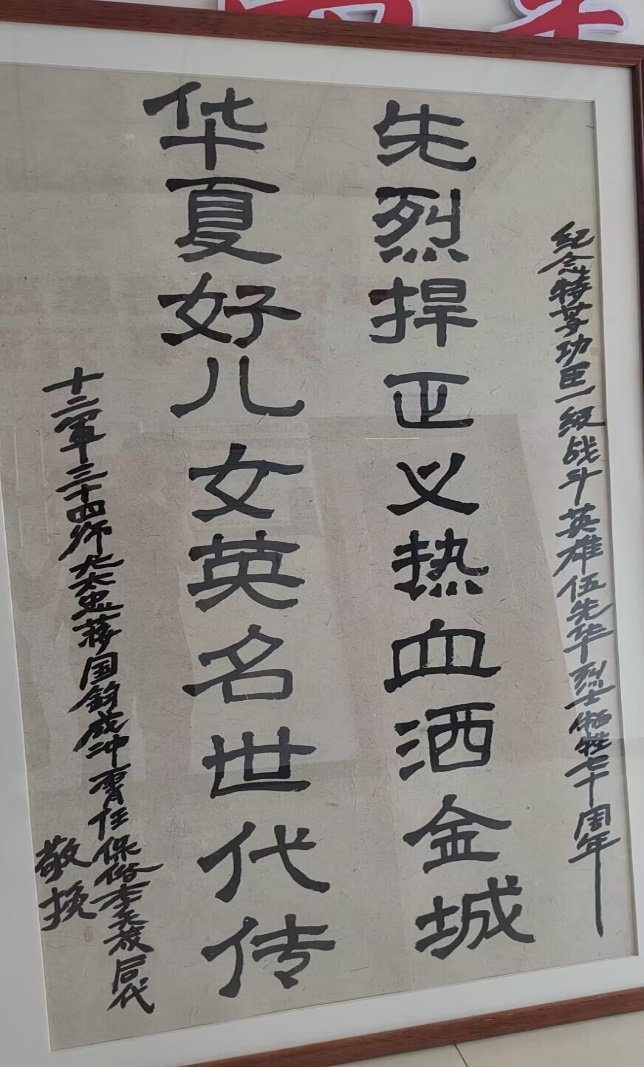 纪念特等功臣一级战斗英雄伍先华烈士牺牲七十周年
先烈捍正义热血洒金城
华夏好儿女英名世代传
十二军三十四师尤太忠蒋国钧成冲霄任保俗李天放后代
敬挽